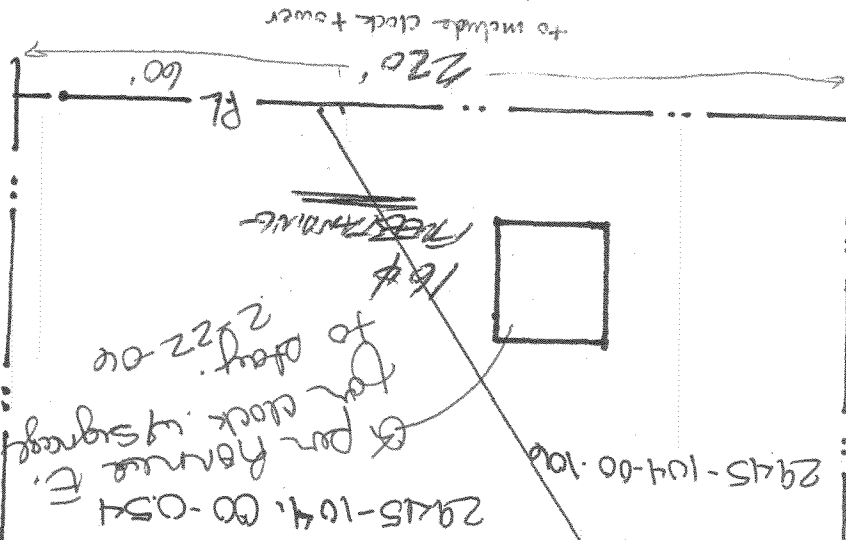 2945-104.00-054
2945-104-00-106
per Ronnie E.
tan clock w/ signage
to stay.
2-22-06
FREESTANDING
PL
60'
220'
to include clock tower